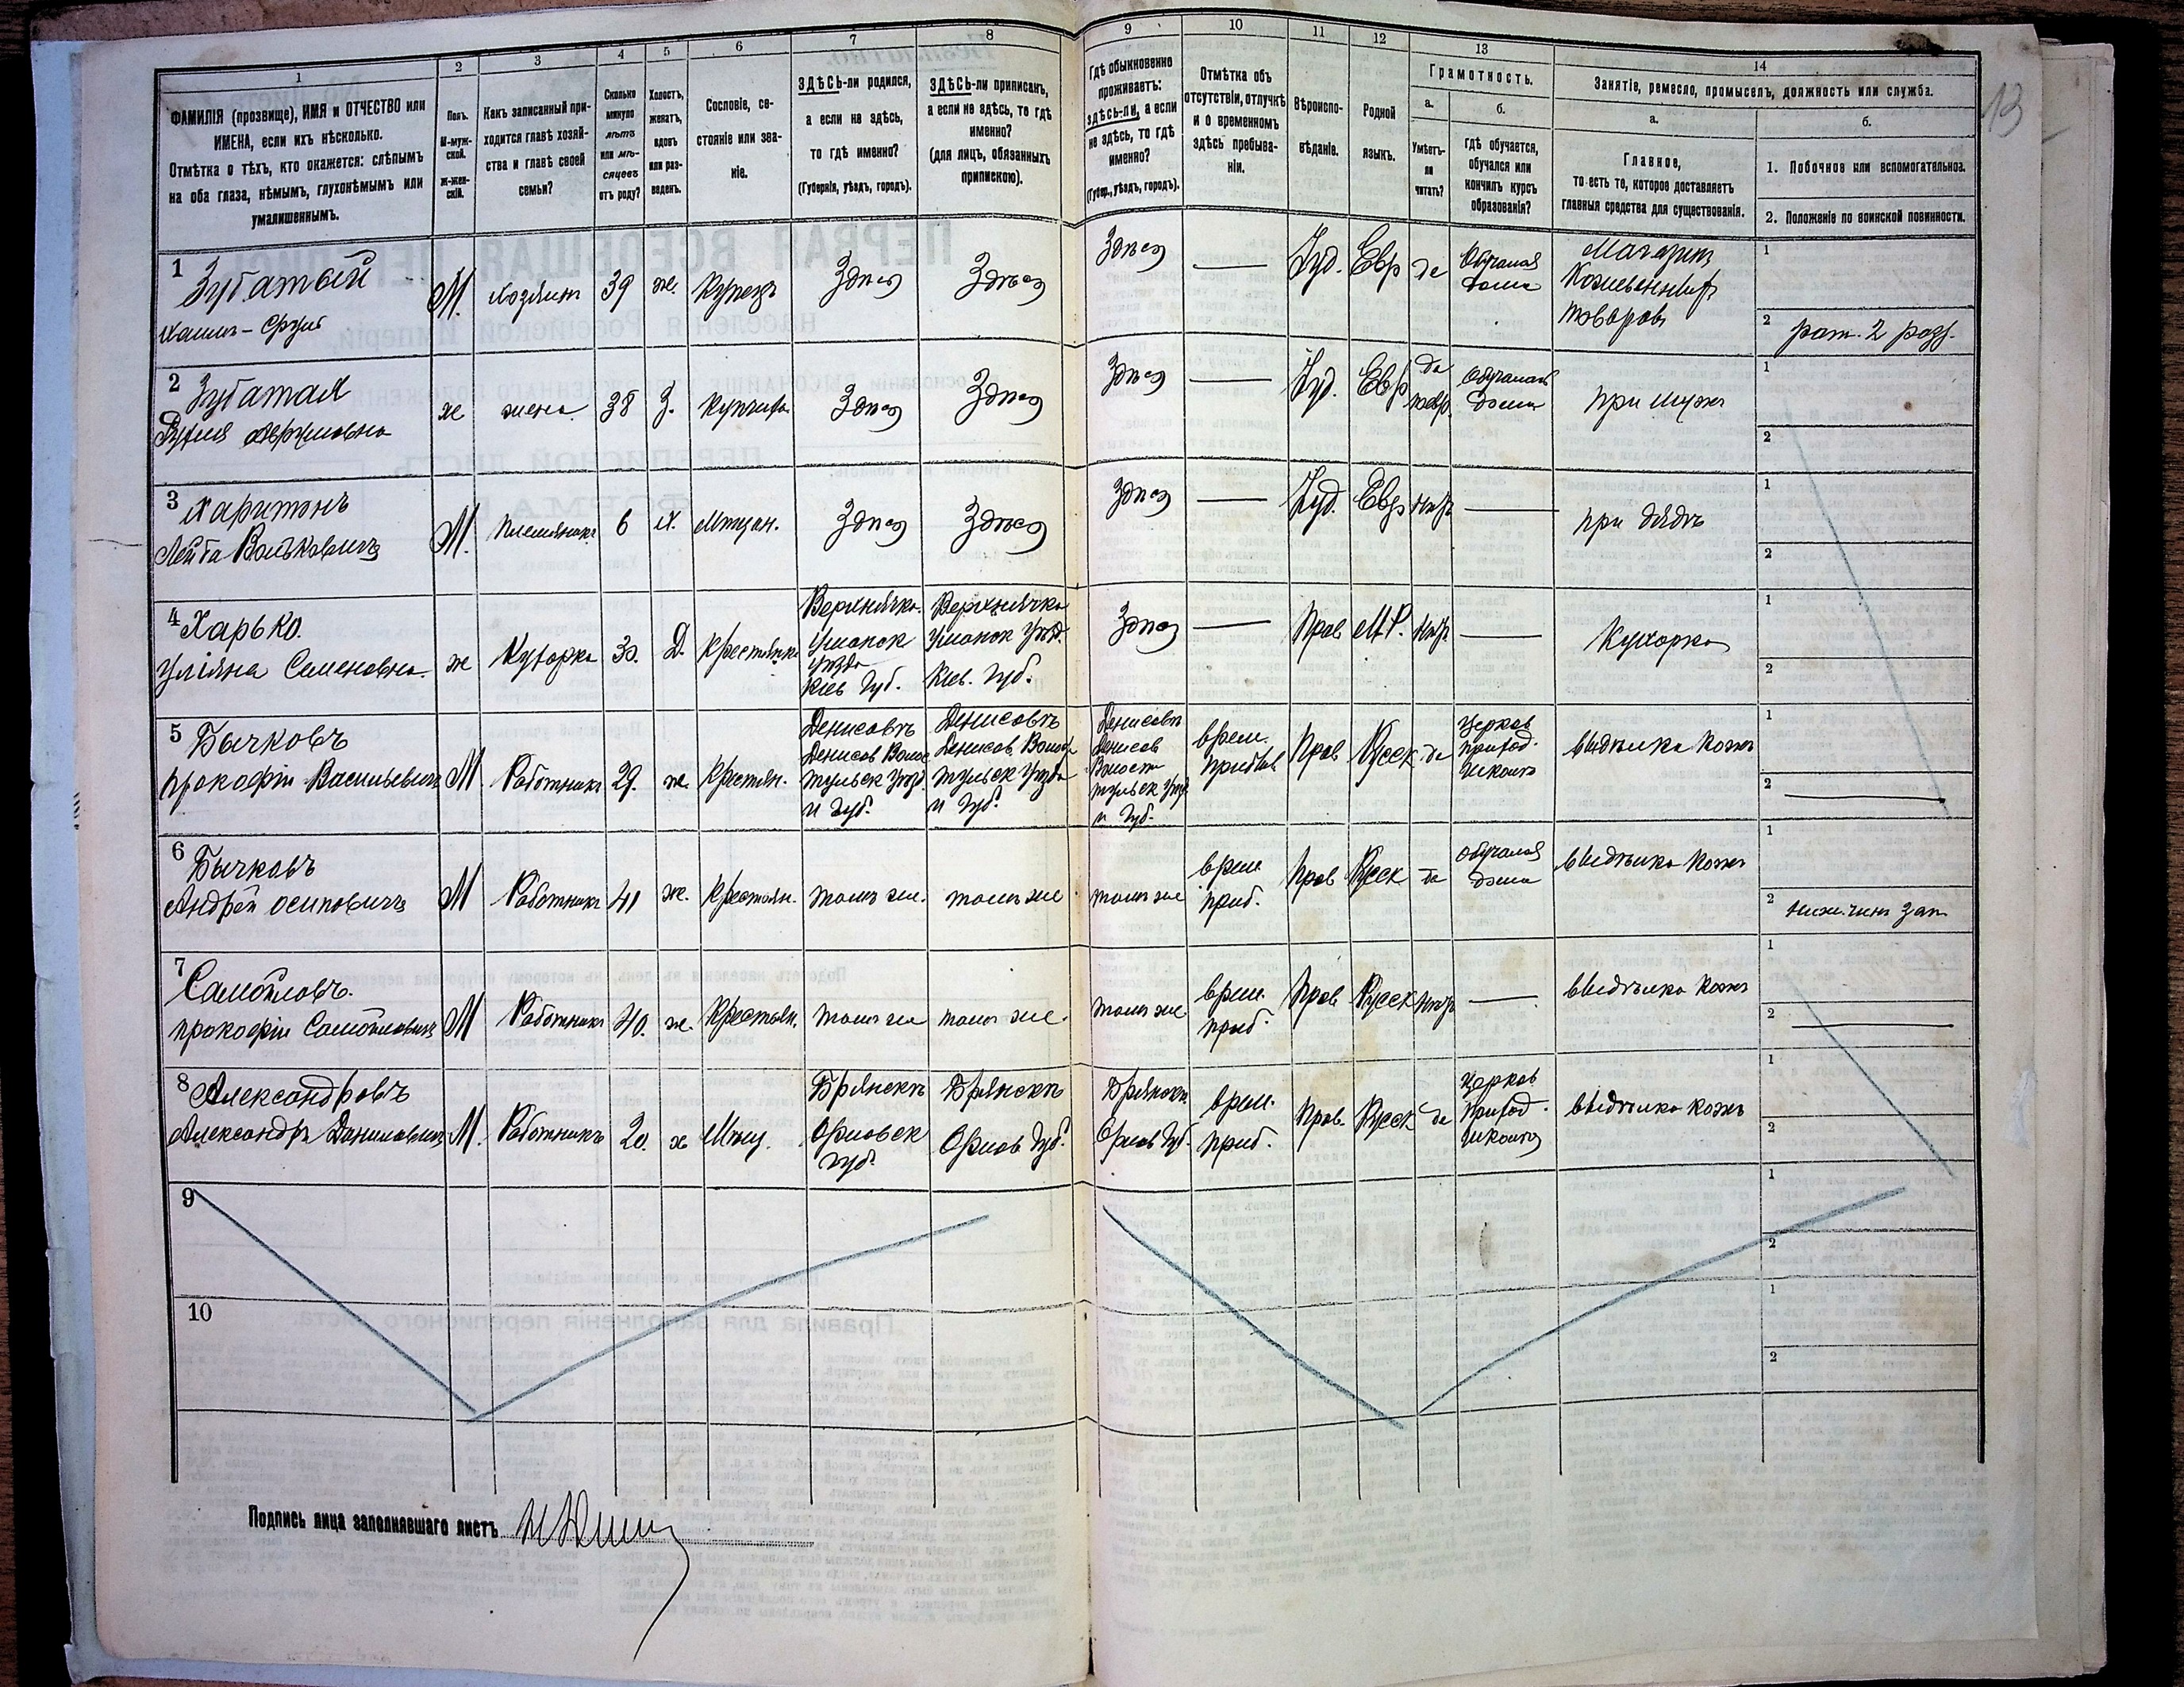 13
1 2 3 4 5 6 7 8 9 10 11 12 13 14
ФАМИЛІЯ (прозвище), ИМЯ и ОТЧЕСТВО или
ИМЕНА, если ихъ нѣсколько.
Отмѣтка о тѣхъ, кто окажется: слѣпымъ
на оба глаза, нѣмымъ, глухонѣмымъ или
умалишеннымъ.
Полъ.
М-муж-
ской.
Ж-жен-
скій.
Какъ записанный при-
ходится главѣ хозяй-
ства и главѣ своей
семьи?
Сколько
минуло
лѣтъ
или мѣ-
сяцевъ
отъ роду?
Холостъ,
женатъ,
вдовъ
или раз-
веденъ.
Сословіе, со-
стояніе или зва-
ніе.
ЗДѢСЬ-ли родился,
а если не здѣсь,
то гдѣ именно?
(Губернія, уѣздъ, городъ).
ЗДѢСЬ-ли приписанъ,
а если не здѣсь, то гдѣ
именно?
(для лицъ, обязанныхъ
припискою).
Гдѣ обыкновенно
проживаетъ:
здѣсь-ли, а если
не здѣсь, то гдѣ
именно?
(Губер., уѣздъ, городъ).
Отмѣтка объ
отсутствіи, отлучкѣ
и о временномъ
здѣсь пребыва-
ніи.
Вѣроиспо-
вѣданіе.
Родной
языкъ.
Грамотность.
а.
Умѣетъ-
ли
читать?
б.
гдѣ обучается,
обучался или
кончилъ курсъ
образованія?
Занятіе, ремесло, промыселъ, должность или служба.
а.
Главное,
то есть то, которое доставляетъ
главныя средства для существованія.
б.
1. Побочное или вспомогательное.
2. Положеніе по воинской повинности.
1 Зубатый
Хаимъ-Сруль
М. Хозяинъ 39 ж. Купецъ Здѣсь Здѣсь Здѣсь — Іуд. Евр да
Обучался
дома
Магазинъ
Кожевенныхъ
товаровъ
1
2 рат. 2 разр.
2 Зубатая
Аврумовна
ж жена 38 З. Купчиха Здѣсь Здѣсь Здѣсь — Іуд. Евр
да
по евр.
Обучалась
дома
при мужѣ
1
2
3 Харитонъ
Лейба Вольковичъ
М. Племянникъ 6 Х. Мѣщан. Здѣсь Здѣсь Здѣсь — Іуд. Евр нѣтъ — при дядѣ
1
2
4 Харько.
Уліяна Семеновна.
ж Кухарка 30. Д. Крестьянка
Верхнячка
Уманск
уѣзда
Кіев Губ.
Верхнячка
Уманск Уѣзд.
Кіев. Губ.
Здѣсь — Прав М.Р. нѣтъ — Кухарка
1
2
5 Бычковъ
Прокофій Васильевичъ
М Работникъ 29. ж. Крестьян.
Денисовъ
Денисов Волос
Тульск Уѣзд.
и Губ.
Денисовъ
Денисов. Волост
Тульск Уѣзда
и Губ.
Денисовъ
Денисов
Волост
Тульск Уѣзд
и Губ.
врем.
Прибыв
Прав Русск да
Церков
приход.
школа
выдѣлка кожъ
1
2 —
6 Бычковъ
Андрей Осиповичъ
М Работникъ 41 ж. Крестьян. тамъ же. тамъ же тамъ же
врем
приб.
Прав Русск да
Обучался
дома
выдѣлка кожъ
1
2 нижн. чинъ зап
7 Самойловъ.
Прокофій Самойловичъ
М Работникъ 40. ж. Крестьян. тамъ же тамъ же. тамъ же
врем.
приб.
Прав Русск нѣтъ — выдѣлка кожъ
1
2 —
8 Александровъ
Александръ Даниловичъ
М. Работникъ 20. х Мѣщ.
Брянскъ
Орловск
Губ.
Брянскъ
Орлов Губ.
Брянскъ
Орлов Губ.
врем.
приб.
Прав. Русск да
Церков
приход.
школа
выдѣлка кожъ
1
2
9
1
2
10
1
2
Подпись лица заполнявшаго листъ